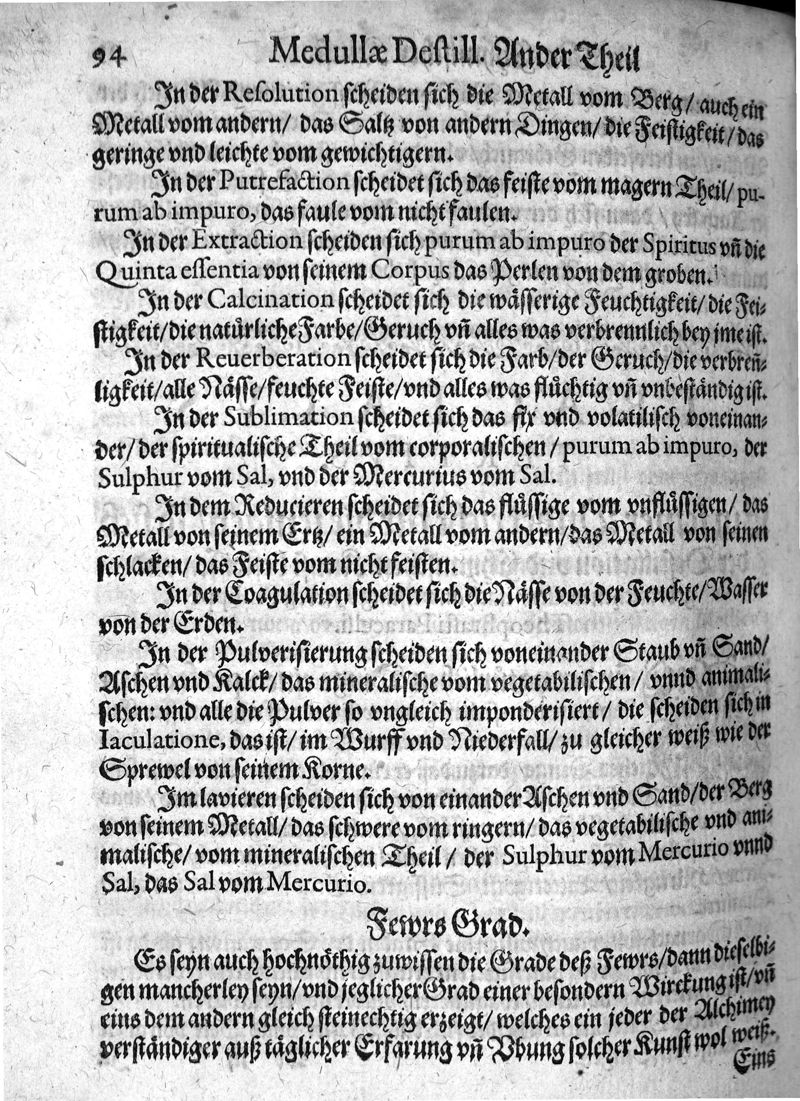 94 Medullæ Destill. Ander Theil
In der Resolution scheiden sich die Metall vom Berg/ auch ein
Metall vom andern/ das Saltz von andern Dingen/ die Feistigkeit/ das
geringe vnd leichte vom gewichtigern.
In der Putrefaction scheidet sich das feiste vom magern Theil/ pu-
rum ab impuro, das faule vom nicht faulen.
In der Extraction scheiden sich purum ab impuro der Spiritus vñ die
Quinta essentia von seinem Corpus das Perlen von dem groben.
In der Calcination scheidet sich die wässerige Feuchtigkeit/ die Fei-
stigkeit/ die natürliche Farbe/ Geruch vñ alles was verbrennlich bey jme ist.
In der Reuerberation scheidet sich die Farb/ der Geruch/ die verbreñ-
ligkeit/ alle Nässe/ feuchte Feiste/ vnd alles was flüchtig vñ vnbeständig ist.
In der Sublimation scheidet sich das fix vnd volatilisch voneinan-
der/ der spiritualische Theil vom corporalischen/ purum ab impuro, der
Sulphur vom Sal, vnd der Mercurius vom Sal.
In dem Reducieren scheidet sich das flüssige vom vnflüssigen/ das
Metall von seinem Ertz/ ein Metall vom andern/ das Metall von seinen
schlacken/ das Feiste vom nicht feisten.
In der Coagulation scheidet sich die Nässe von der Feuchte/ Wasser
von der Erden.
In der Pulverisierung scheiden sich voneinander Staub vñ Sand/
Aschen vnd Kalck/ das mineralische vom vegetabilischen/ vnnd animali-
schen: vnd alle die Pulver so vngleich imponderisiert/ die scheiden sich in
Iaculatione, das ist/ im Wurff vnd Niederfall/ zu gleicher weiß wie der
Sprewel von seinem Korne.
Im lavieren scheiden sich von einander Aschen vnd Sand/ der Berg
von seinem Metall/ das schwere vom ringern/ das vegetabilische vnd ani-
malische/ vom mineralischen Theil/ der Sulphur vom Mercurio vnnd
Sal, das Sal vom Mercurio.
Fewrs Grad.
Es seyn auch hochnöthig zuwissen die Grade deß Fewrs/ dann dieselbi-
gen mancherley seyn/ vnd jeglicher Grad einer besondern Wirckung ist/ vñ
eins dem andern gleich steinechtig erzeigt/ welches ein jeder der Alchimey
verständiger auß täglicher Erfarung vñ Vbung solcher Kunst wol weiß.
Eins